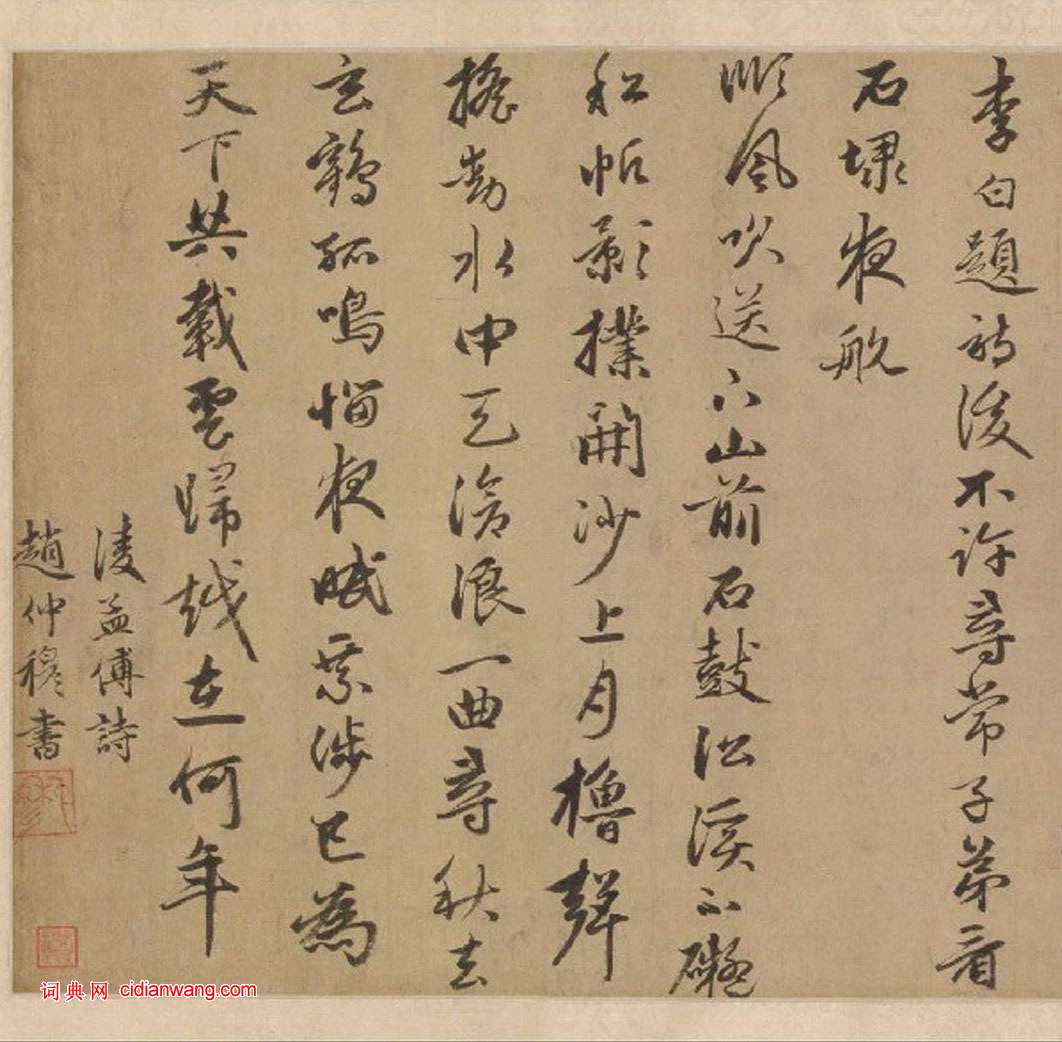 李白題詩後不許尋常子弟看
石埭夜航
順風吹送下山前石鼓沿溪不礙
舩帆影撲開沙上月櫓聲
搖動水中天滄浪一曲尋秋去
玄鶴孤鳴惱夜眠涉已為
天下共載雲歸越在何年
淩孟傅詩
趙仲穆書
词典网 cidianwang.com